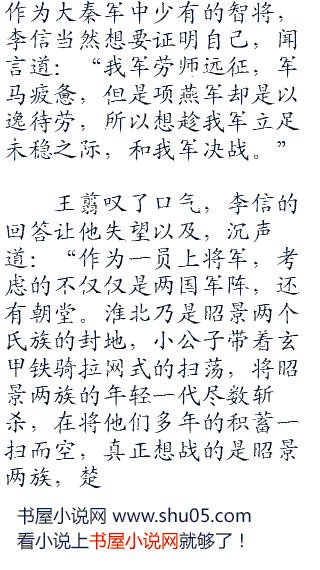 作为大秦军中少有的智将，
李信当然想要证明自己，闻
言道：“我军劳师远征，军
马疲惫，但是项燕军却是以
逸待劳，所以想趁我军立足
未稳之际，和我军决战。”
王翦叹了口气，李信的
回答让他失望以及，沉声
道：“作为一员上将军，考
虑的不仅仅是两国军阵，还
有朝堂。淮北乃是昭景两个
氏族的封地，小公子带着玄
甲铁骑拉网式的扫荡，将昭
景两族的年轻一代尽数斩
杀，在将他们多年的积蓄一
扫而空，真正想战的是昭景
两族，楚
书屋小说网 www.shu05.com
看小说上书屋小说网就够了！